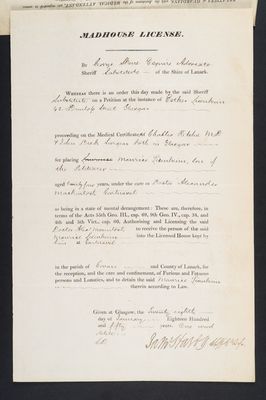 MADHOUSE LICENSE.
By George Skene Esquire Advocate
Sheriff Substitute of the Shire of Lanark.
WHEREAS there is an order this day made by the said Sheriff
Substitute on a Petition at the instance of Esther
42 Dunlop Street Glasgow
proceeding on the Medical Certificates of Charles Ritchie M.D.
& John surgeon both in Glasgow
for placing Maurice son of
the Petitioner
aged twenty four years, under the care of Doctor Alexander
Mackintosh Gartnavel
as being in a state of mental derangement: These are, therefore, in
terms of the Acts 55th Geo. III., cap. 69, 9th Geo. IV., cap. 34, and
4th and 5th Vict., cap. 60, Authorising and Licensing the said
Doctor Alexr Mackintosh to receive the person of the said
Maurice into the Licensed House kept by
him at Gartnavel
in the parish of Govan and County of Lanark, for
the reception, and the care and confinement, of Furious and Fatuous
persons and Lunatics, and to detain the said Maurice
therein according to Law.
Given at Glasgow, the twenty eighth
day of January Eighteen Hundred
and fifty years One word